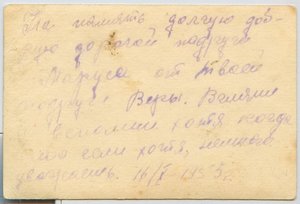 На память долгую доб-
рую дорогой подруге
Маруся от твоей
подруги Веры. Взгляни
вспомни хотя когда
то если хотя, немного
уважаешь. 16/I-1955г.